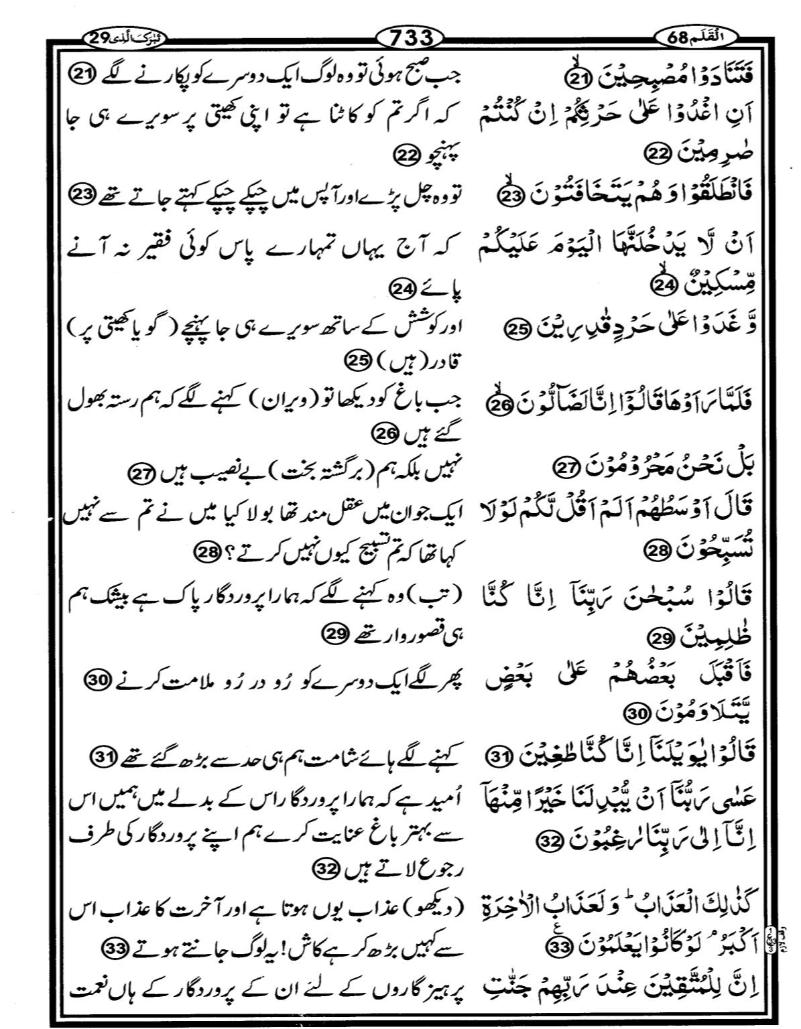 الْقَلَم 68
733
تَبٰرَکَ الَّذِی 29
فَتَنَادَوْا مُصْبِحِیْنَ ۙ 21
جب صبح ہوئی تو وہ لوگ ایک دوسرے کو پکارنے لگے 21
اَنِ اغْدُوْا عَلٰی حَرْثِكُمْ اِنْ كُنْتُمْ
صٰرِمِیْنَ 22
کہ اگر تم کو کاٹنا ہے تو اپنی کھیتی پر سویرے ہی جا
پہنچو 22
فَانْطَلَقُوْا وَ هُمْ یَتَخَافَتُوْنَ ۙ 23
تو وہ چل پڑے اور آپس میں چپکے چپکے کہتے جاتے تھے 23
اَنْ لَّا یَدْخُلَنَّهَا الْیَوْمَ عَلَیْكُمْ
مِّسْكِیْنٌ ۙ 24
کہ آج یہاں تمہارے پاس کوئی فقیر نہ آنے
پائے 24
وَّ غَدَوْا عَلٰی حَرْدٍ قٰدِرِیْنَ 25
اور کوشش کے ساتھ سویرے ہی جا پہنچے (گویا کھیتی پر)
قادر (ہیں) 25
فَلَمَّا رَاَوْهَا قَالُوْۤا اِنَّا لَضَآلُّوْنَ ۙ 26
جب باغ کو دیکھا تو (ویران) کہنے لگے کہ ہم رستہ بھول
گئے ہیں 26
بَلْ نَحْنُ مَحْرُوْمُوْنَ 27
نہیں بلکہ ہم (برگشتہ بخت) بے نصیب ہیں 27
قَالَ اَوْسَطُهُمْ اَلَمْ اَقُلْ لَّكُمْ لَوْلَا
تُسَبِّحُوْنَ 28
ایک جو ان میں عقل مند تھا بولا کیا میں نے تم سے نہیں
کہا تھا کہ تم تسبیح کیوں نہیں کرتے؟ 28
قَالُوْا سُبْحٰنَ رَبِّنَاۤ اِنَّا كُنَّا
ظٰلِمِیْنَ 29
(تب) وہ کہنے لگے کہ ہمارا پروردگار پاک ہے بیشک ہم
ہی قصوروار تھے 29
فَاَقْبَلَ بَعْضُهُمْ عَلٰی بَعْضٍ
یَّتَلَاوَمُوْنَ 30
پھر لگے ایک دوسرے کو رُو در رُو ملامت کرنے 30
قَالُوْا یٰوَیْلَنَاۤ اِنَّا كُنَّا طٰغِیْنَ 31
کہنے لگے ہائے شامت ہم ہی حد سے بڑھ گئے تھے 31
عَسٰی رَبُّنَاۤ اَنْ یُّبْدِلَنَا خَیْرًا مِّنْهَاۤ
اِنَّاۤ اِلٰی رَبِّنَا رٰغِبُوْنَ 32
اُمید ہے کہ ہمارا پروردگار اس کے بدلے میں ہمیں اس
سے بہتر باغ عنایت کرے ہم اپنے پروردگار کی طرف
رجوع لاتے ہیں 32
كَذٰلِكَ الْعَذَابُ ؕ وَ لَعَذَابُ الْاٰخِرَةِ
اَكْبَرُ ۘ لَوْ كَانُوْا یَعْلَمُوْنَ ۠ 33
(دیکھو) عذاب یوں ہوتا ہے اور آخرت کا عذاب اس
سے کہیں بڑھ کر ہے کاش! یہ لوگ جانتے ہوتے 33
اِنَّ لِلْمُتَّقِیْنَ عِنْدَ رَبِّهِمْ جَنّٰتِ
پرہیزگاروں کے لئے ان کے پروردگار کے ہاں نعمت
وقف لازم